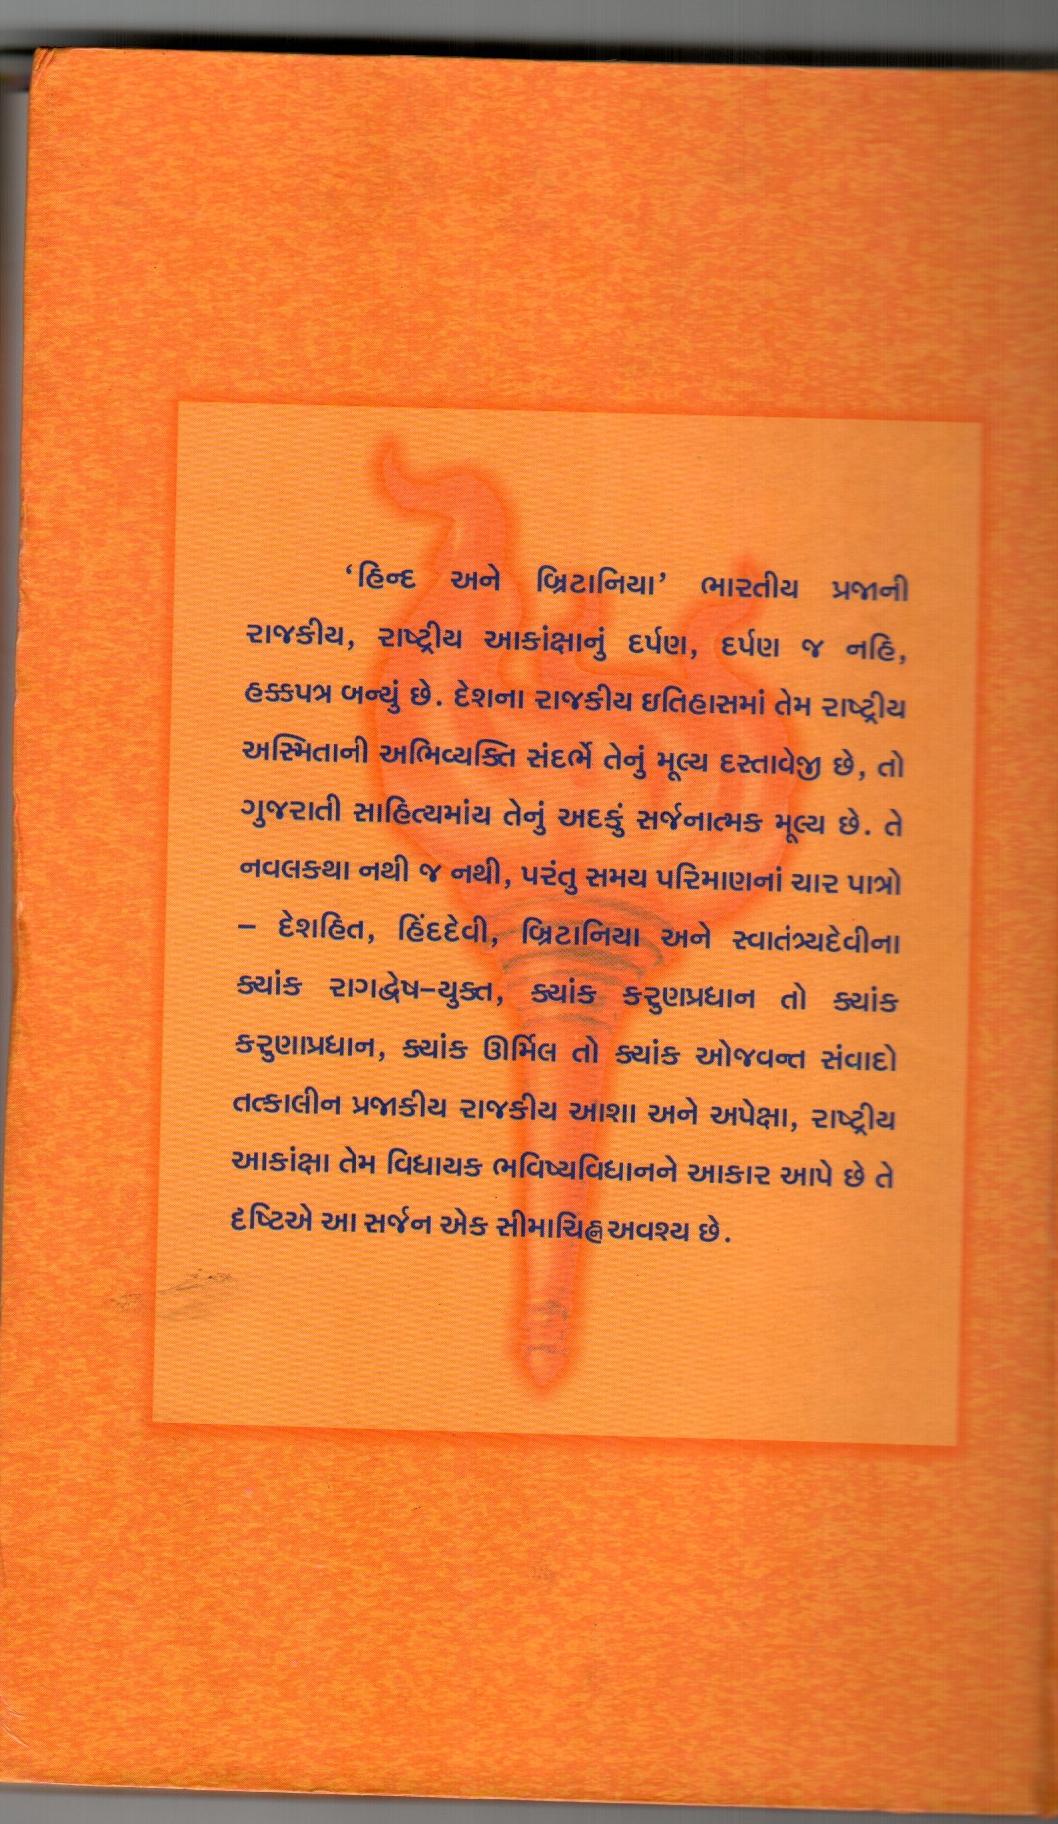 ‘હિન્દ અને બ્રિટાનિયા’ ભારતીય પ્રજાની
રાજકીય, રાષ્ટ્રીય આકાંક્ષાનું દર્પણ, દર્પણ જ નહિ,
હક્કપત્ર બન્યું છે. દેશના રાજકીય ઇતિહાસમાં તેમ રાષ્ટ્રીય
અસ્મિતાની અભિવ્યક્તિ સંદર્ભે તેનું મૂલ્ય દસ્તાવેજી છે, તો
ગુજરાતી સાહિત્યમાંય તેનું અદકું સર્જનાત્મક મૂલ્ય છે. તે
નવલકથા નથી જ નથી, પરંતુ સમય પરિમાણનાં ચાર પાત્રો
– દેશહિત, હિંદદેવી, બ્રિટાનિયા અને સ્વાતંત્ર્યદેવીના
ક્યાંક રાગદ્વેષ–યુક્ત, ક્યાંક કરુણપ્રધાન તો ક્યાંક
કરુણાપ્રધાન, ક્યાંક ઊર્મિલ તો ક્યાંક ઓજવન્ત સંવાદો
તત્કાલીન પ્રજાકીય રાજકીય આશા અને અપેક્ષા, રાષ્ટ્રીય
આકાંક્ષા તેમ વિધાયક ભવિષ્યવિધાનને આકાર આપે છે તે
દૃષ્ટિએ આ સર્જન એક સીમાચિહ્ન અવશ્ય છે.